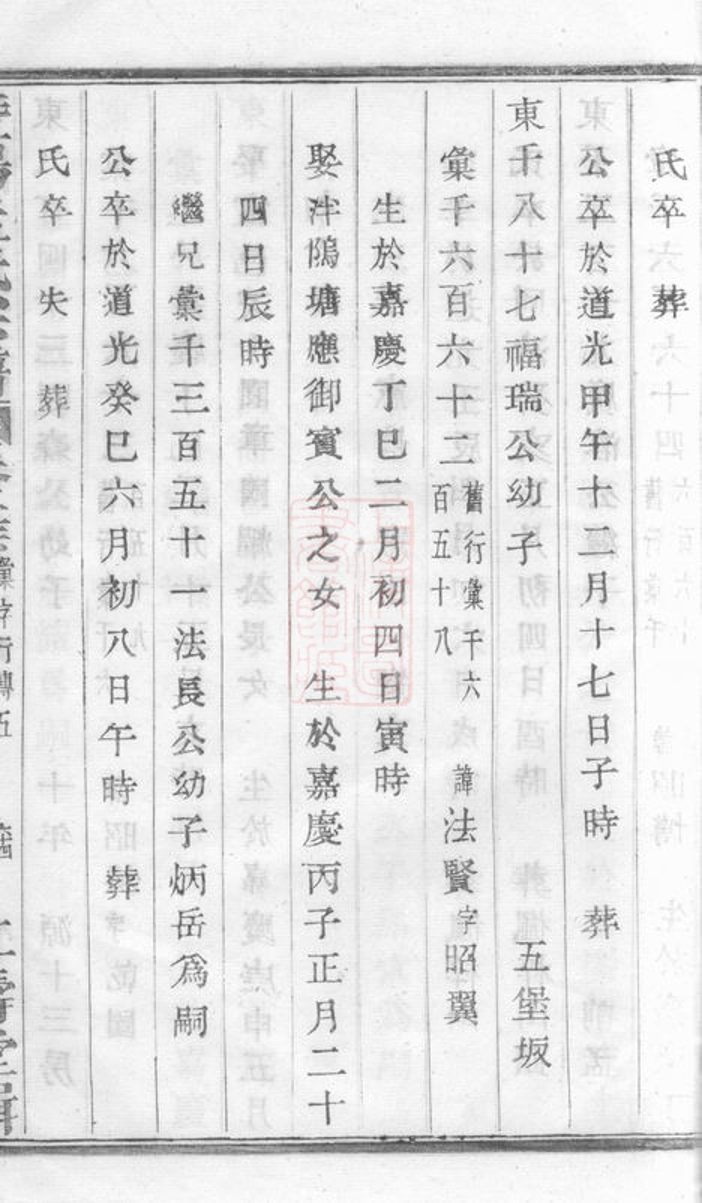 氏卒 葬
公卒於道光甲午十二月十七日子時 葬
東千八十七福瑞公幼子 五堡坂
彙千六百六十二舊行彙千六百五十八 諱法賢字昭翼
生於嘉慶丁巳二月初四日寅時
娶泮隖塘應御賓公之女 生於嘉慶丙子正月二十
四日辰時
繼兄彙千三百五十一法長公幼子炳岳爲嗣
公卒於道光癸巳六月初八日午時 葬
氏卒失 葬